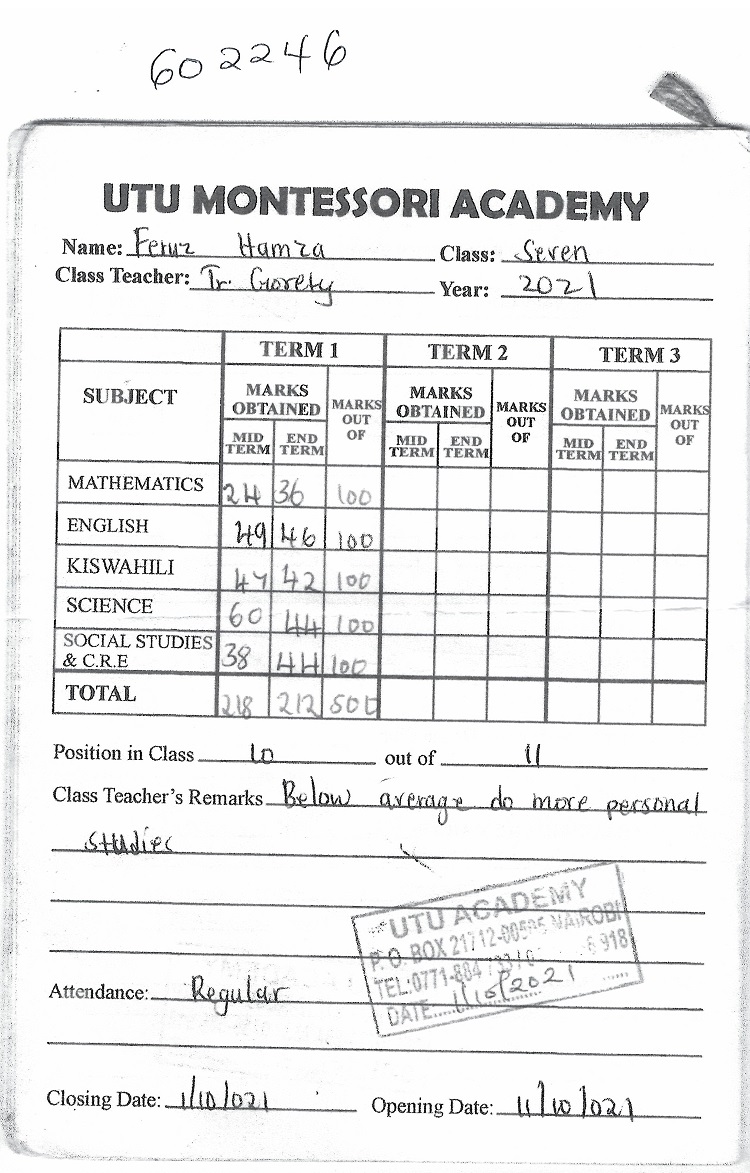 602246
UTU MONTESSORI ACADEMY
Name: Feruz Hamza Class: Seven
Class Teacher: Tr. Gorety Year: 2021
TERM 1 TERM 2 TERM 3
SUBJECT MARKS OBTAINED MARKS OUT OF MARKS OBTAINED MARKS OUT OF MARKS OBTAINED MARKS OUT OF
MID TERM END TERM MID TERM END TERM MID TERM END TERM
MATHEMATICS 24 36 100
ENGLISH 49 46 100
KISWAHILI 47 42 100
SCIENCE 60 44 100
SOCIAL STUDIES & C.R.E 38 44 100
TOTAL 218 212 500
Position in Class 10 out of 11
Class Teacher's Remarks Below average do more personal
studies
UTU ACADEMY
P. O. BOX 21712-00505 NAIROBI
TEL:0771-884 918
DATE.....1/10/2021......
Attendance: Regular
Closing Date: 1/10/021 Opening Date: 11/10/021